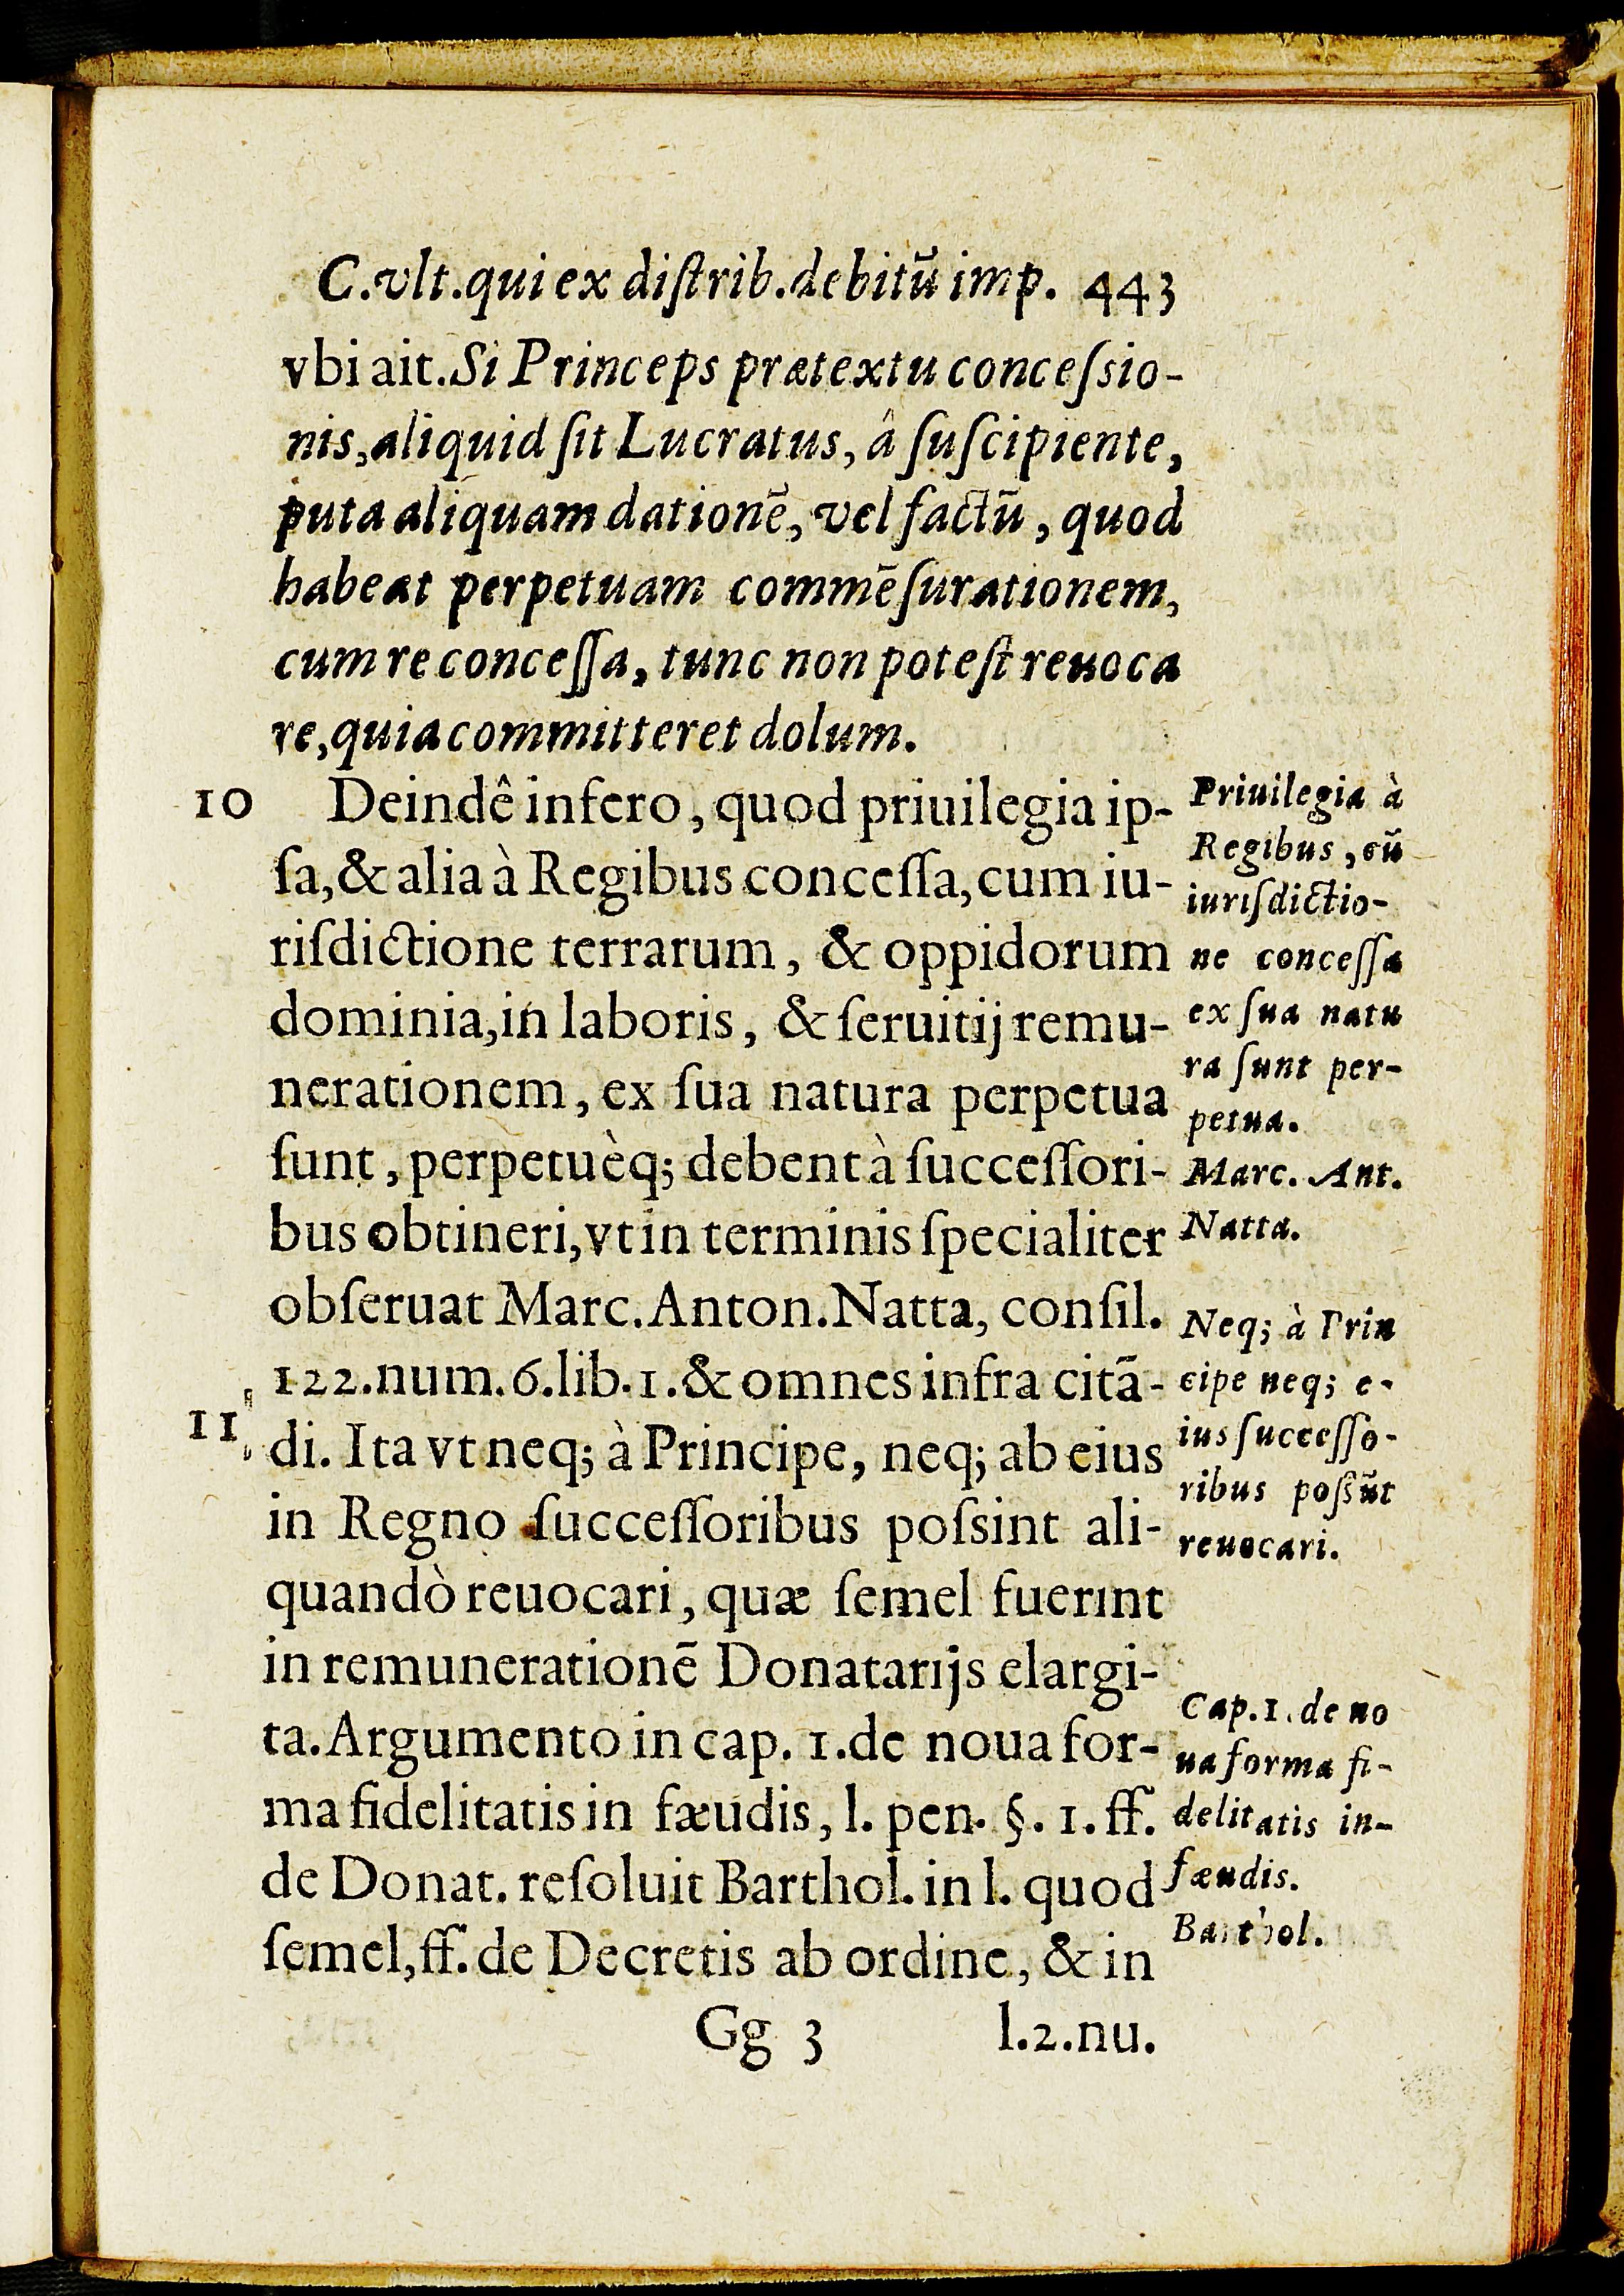 C.vlt.qui ex diſtrib.debitū imp. 443
vbi ait. Si Princeps prætextu conceſsio-
nis, aliquid ſit Lucratus, â ſuſcipiente,
puta aliquam dationē, vel factū, quod
habeat perpetuam commēſurationem,
cum re conceſſa, tunc non poteſt reuoca
re, quia committeret dolum.
10 Deindê infero, quod priuilegia ip-
ſa, & alia à Regibus conceſſa, cum iu-
riſdictione terrarum, & oppidorum
dominia, in laboris, & ſeruitij remu-
nerationem, ex ſua natura perpetua
ſunt, perpetuèq; debent à ſucceſſori-
bus obtineri, vt in terminis ſpecialiter
obſeruat Marc. Anton. Natta, conſil.
122. num. 6. lib. 1. & omnes infra citā-
11 di. Ita vt neq; à Principe, neq; ab eius
in Regno ſucceſſoribus poſsint ali-
quandò reuocari, quæ ſemel fuerint
in remunerationē Donatarijs elargi-
ta. Argumento in cap. 1. de noua for-
ma fidelitatis in fæudis, l. pen. §. 1. ff.
de Donat. reſoluit Barthol. in l. quod
ſemel, ff. de Decretis ab ordine, & in
Gg 3 l.2.nu.
Priuilegia à
Regibus, cū
iuriſdictio-
ne conceſſa
ex ſua natu
ra ſunt per-
petua.
Marc. Ant.
Natta.
Neq; à Prin
cipe neq; e-
ius ſucceſſo-
ribus poſsūt
reuocari.
Cap. 1. de no
ua forma fi-
delitatis in-
fæudis.
Barthol.